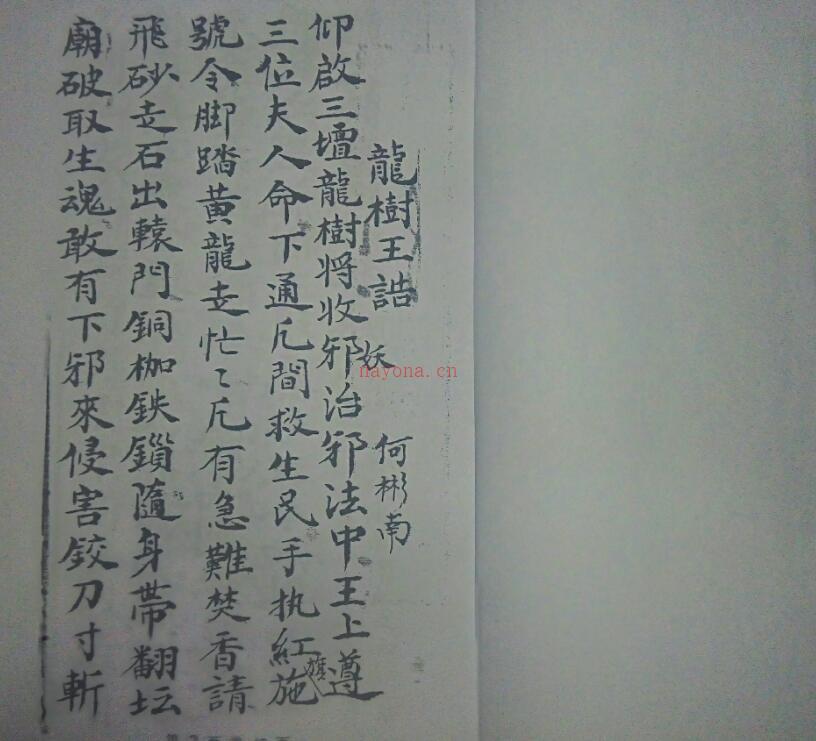 龍樹王誥 何彬南
仰啟三壇龍樹将收邪治邪法中王上遵
妖
三位夫人命下通凢間救生民手执紅施
旗
號令脚踏黃龍走忙〻凢有急難焚香請
飛砂走石出轅門銅枷鉄鎖隨身帶翻坛
廟破取生魂敢有下邪來侵害鉸刀寸斬
nayona.cn